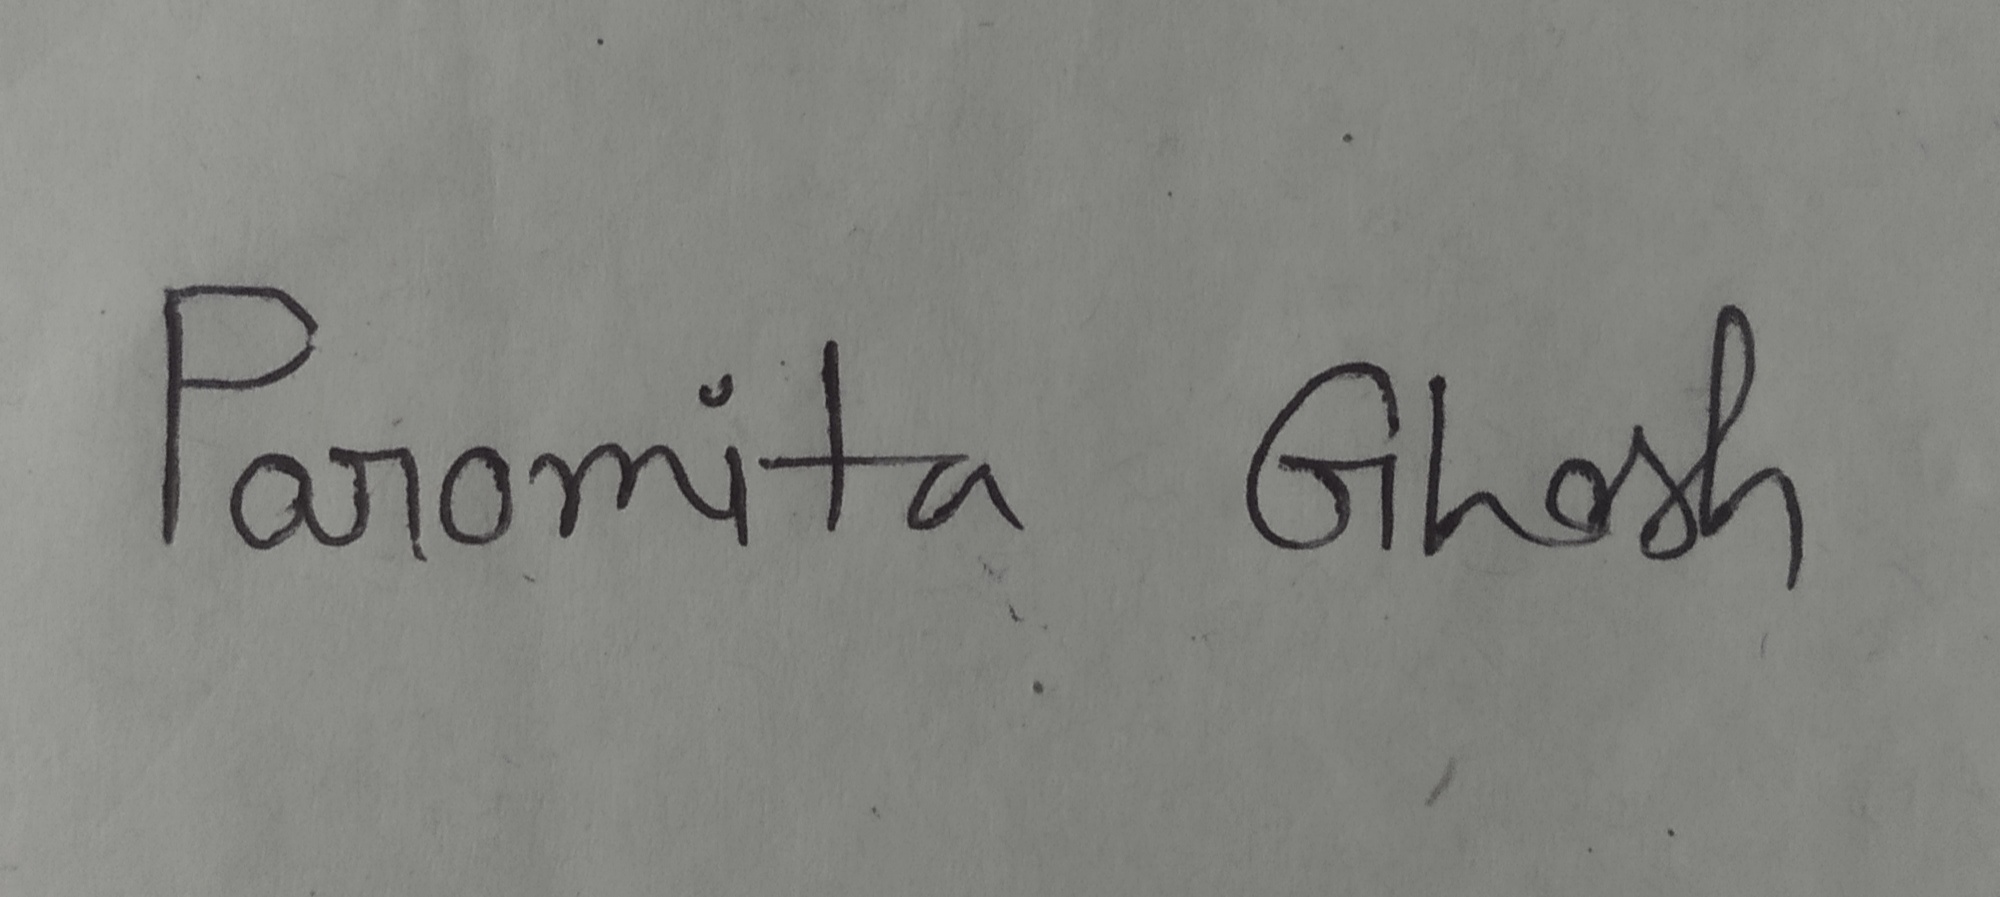 Paromita Ghosh